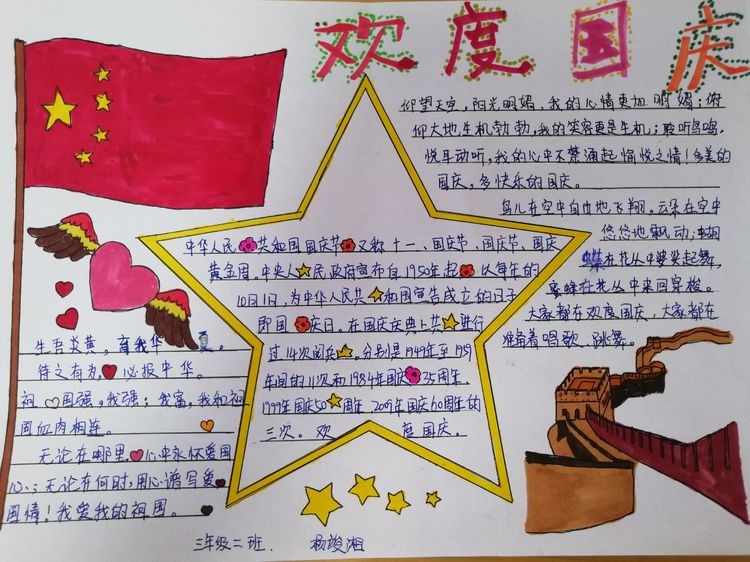 欢度国庆
仰望天空，阳光明媚，我的心情更加明媚；俯
仰大地生机勃勃，我的笑容更是生机；聆听鸟鸣，
悦耳动听，我的心中不禁涌起愉悦之情！多美的
国庆，多快乐的国庆。
鸟儿在空中自由地飞翔。云朵在空中
悠悠地飘动；蝴
蝶在花丛中婆娑起舞，
蜜蜂在花丛中来回穿梭。
大家都在欢度国庆，大家都在
准备着唱歌、跳舞。
中华人民共和国国庆节又称十一、国庆节、国庆节、国庆
黄金周。中央人民政府宣布自1950年起以每年的
10月1日，为中华人民共和国宣告成立的日子
即国庆日。在国庆庆典上共进行
过14次阅兵。分别是1949年至1959
年间的11次和1984年国庆35周年、
1999年国庆50周年2009年国庆60周年的
三次。欢度国庆。
生吾炎黄，育我华夏。
待之有为，必报中华。
祖国强，我强；我富，我和祖
国血肉相连。
无论在哪里，心中永怀爱国
心；无论在何时，用心谱写爱
国情！我爱我的祖国。
三年级二班. 杨竣湘